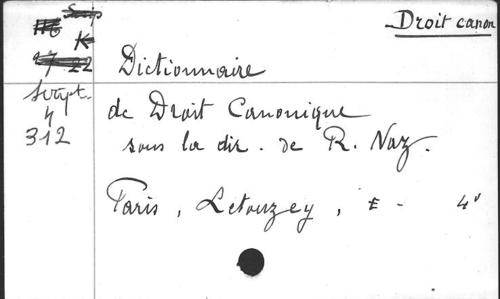 Droit canon
K
17 22
Script.
4
312
Dictionnaire
de Droit Canonique
sous la dir. de R. Naz.
Paris, Letouzey, - 4°